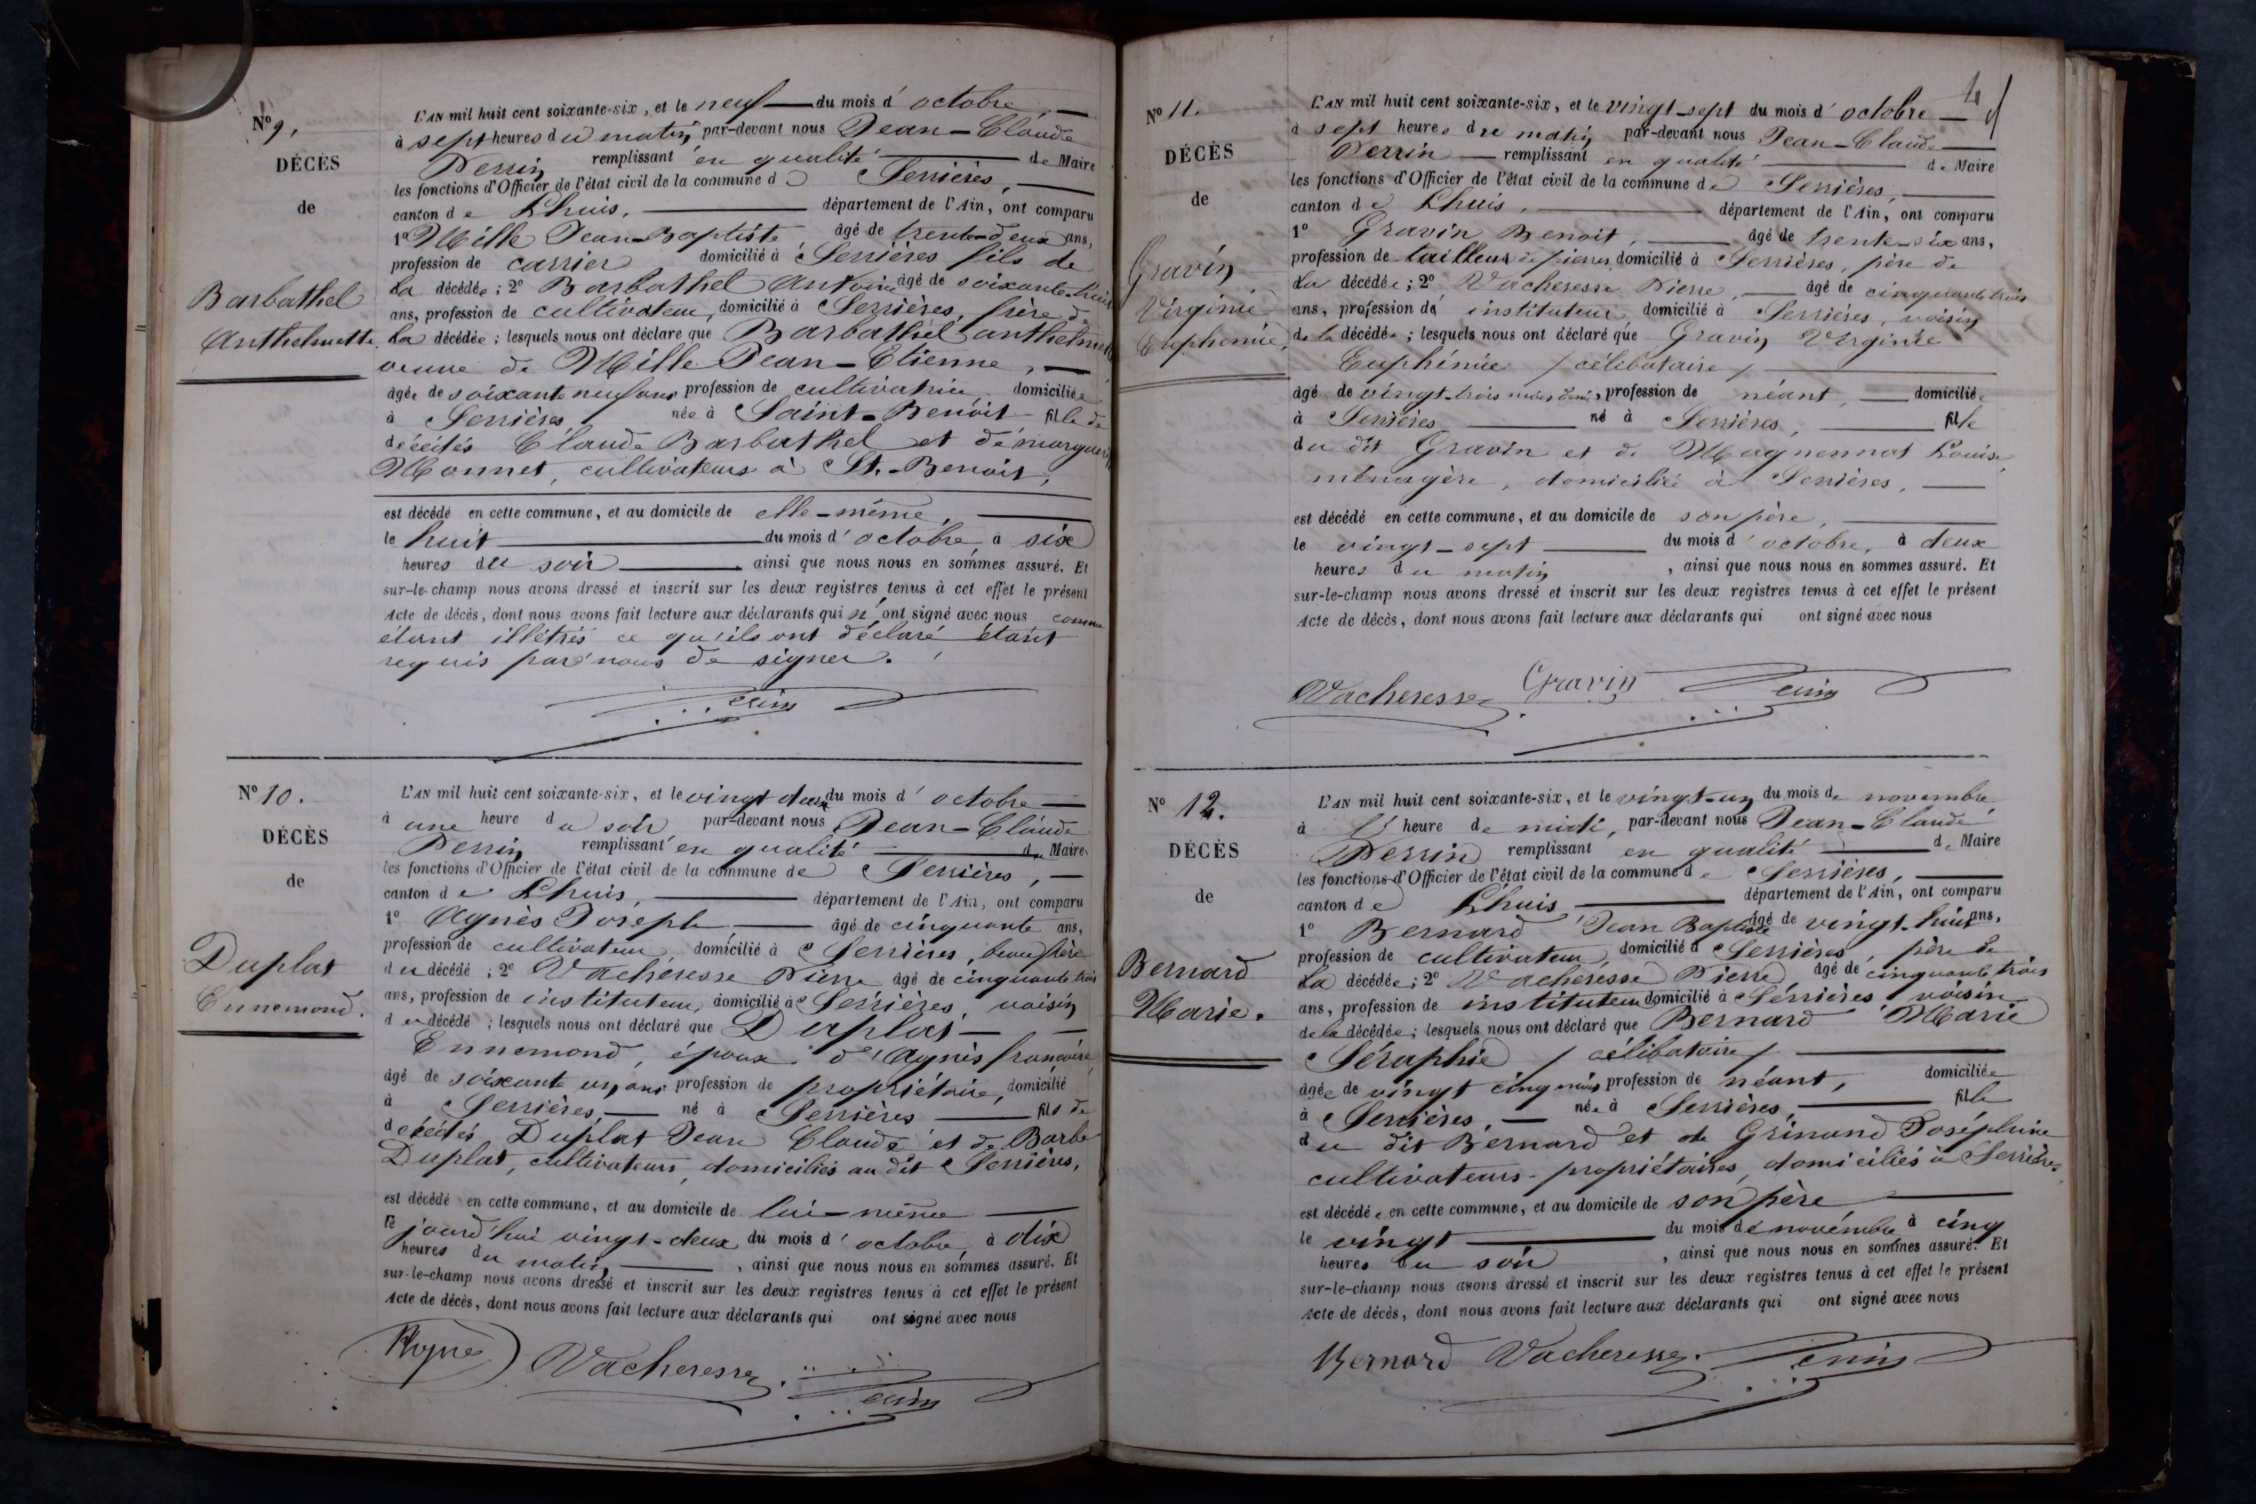 Nº 9.
DÉCÈS
de
Barbathel
Anthelmette
L'AN mil huit cent soixante-six, et le neuf du mois d'octobre
à sept heures du matin, par-devant nous Jean-Claude
Perrin remplissant en qualité de Maire
les fonctions d'Officier de l'état civil de la commune de Serrières,
canton de Lhuis, département de l'Ain, ont comparu
1º Mille Jean-Baptiste âgé de trente-deux ans,
profession de carrier domicilié à Serrières fils de
la décédée; 2º Barbathel Antoine âgé de soixante-huit
ans, profession de cultivateur, domicilié à Serrières, frère de
la décédée; lesquels nous ont déclaré que Barbathel anthelmette
veuve de Mille Jean-Etienne,
âgée de soixante neuf ans profession de cultivatrice domiciliée
à Serrières née à Saint-Benoit fille de
décédés Claude Barbathel et de marguerite
Monnet, cultivateurs à St.-Benoit,
est décédé en cette commune, et au domicile de elle-même,
le huit du mois d'octobre à six
heures du soir ainsi que nous nous en sommes assuré. Et
sur-le-champ nous avons dressé et inscrit sur les deux registres tenus à cet effet le présent
Acte de décès, dont nous avons fait lecture aux déclarants qui n'ont signé avec nous comme
étant illétrés ce qu'ils ont déclaré étant
requis par nous de signer.
Perrin
Nº 10.
DÉCÈS
de
Duplat
Ennemond.
L'AN mil huit cent soixante-six, et le vingt deux du mois d'octobre
à une heure du soir par-devant nous Jean-Claude
Perrin remplissant en qualité de Maire
les fonctions d'Officier de l'état civil de la commune de Serrières,
canton de Lhuis, département de l'Ain, ont comparu
1º Agnès Joseph âgé de cinquante ans,
profession de cultivateur, domicilié à Serrières, beau frère
du décédé; 2º Vacheresse Pierre âgé de cinquante trois
ans, profession de instituteur, domicilié à Serrières, voisin
du décédé; lesquels nous ont déclaré que Duplat
Ennemond, époux d'Agnès françoise
âgé de soixante un ans profession de propriétaire, domicilié
à Serrières, né à Serrières fils de
décédés Duplat Jean Claude et de Barbe
Duplat, cultivateurs, domiciliés au dit Serrières,
est décédé en cette commune, et au domicile de lui-même
le jourd'hui vingt-deux du mois d'octobre, à dix
heures du matin, ainsi que nous nous en sommes assuré. Et
sur-le-champ nous avons dressé et inscrit sur les deux registres tenus à cet effet le présent
Acte de décès, dont nous avons fait lecture aux déclarants qui ont signé avec nous
Agnès Vacheresse Perrin
4
Nº 11.
DÉCÈS
de
Gravin
Virginie
Euphémie,
L'AN mil huit cent soixante-six, et le vingt-sept du mois d'octobre
à sept heures du matin par-devant nous Jean-Claude
Perrin remplissant en qualité de Maire
les fonctions d'Officier de l'état civil de la commune de Serrières,
canton de Lhuis, département de l'Ain, ont comparu
1º Gravin Benoit, âgé de trente-six ans,
profession de tailleur de pierres, domicilié à Serrières, père de
la décédée; 2º Vacheresse Pierre, âgé de cinquante trois
ans, profession de instituteur domicilié à Serrières, voisin
de la décédée; lesquels nous ont déclaré que Gravin Virginie
Euphémie / célibataire /
âgé de vingt-trois mois profession de néant, domiciliée
à Serrières né à Serrières, fille
du dit Gravin et de Magnennot Louise,
ménagère, domiciliée à Serrières,
est décédé en cette commune, et au domicile de son père,
le vingt-sept du mois d'octobre, à deux
heures du matin, ainsi que nous nous en sommes assuré. Et
sur-le-champ nous avons dressé et inscrit sur les deux registres tenus à cet effet le présent
Acte de décès, dont nous avons fait lecture aux déclarants qui ont signé avec nous
Vacheresse Gravin Perrin
Nº 12.
DÉCÈS
de
Bernard
Marie.
L'AN mil huit cent soixante-six, et le vingt-un du mois de novembre
à l'heure de midi, par-devant nous Jean-Claude
Perrin remplissant en qualité de Maire
les fonctions d'Officier de l'état civil de la commune de Serrières,
canton de Lhuis département de l'Ain, ont comparu
1º Bernard Jean Baptiste âgé de vingt-huit ans,
profession de cultivateur, domicilié à Serrières, père de
la décédée; 2º Vacheresse Pierre, âgé de cinquante trois
ans, profession de instituteur domicilié à Serrières voisin
de la décédée; lesquels nous ont déclaré que Bernard Marie
Séraphie / célibataire /
âgée de vingt cinq mois profession de néant, domiciliée
à Serrières, née à Serrières, fille
du dit Bernard et de Grinand Joséphine
cultivateurs-propriétaires, domiciliés à Serrières,
est décédée en cette commune, et au domicile de son père
le vingt du mois de novembre à cinq
heures du soir, ainsi que nous nous en sommes assuré. Et
sur-le-champ nous avons dressé et inscrit sur les deux registres tenus à cet effet le présent
Acte de décès, dont nous avons fait lecture aux déclarants qui ont signé avec nous
Bernard Vacheresse Perrin